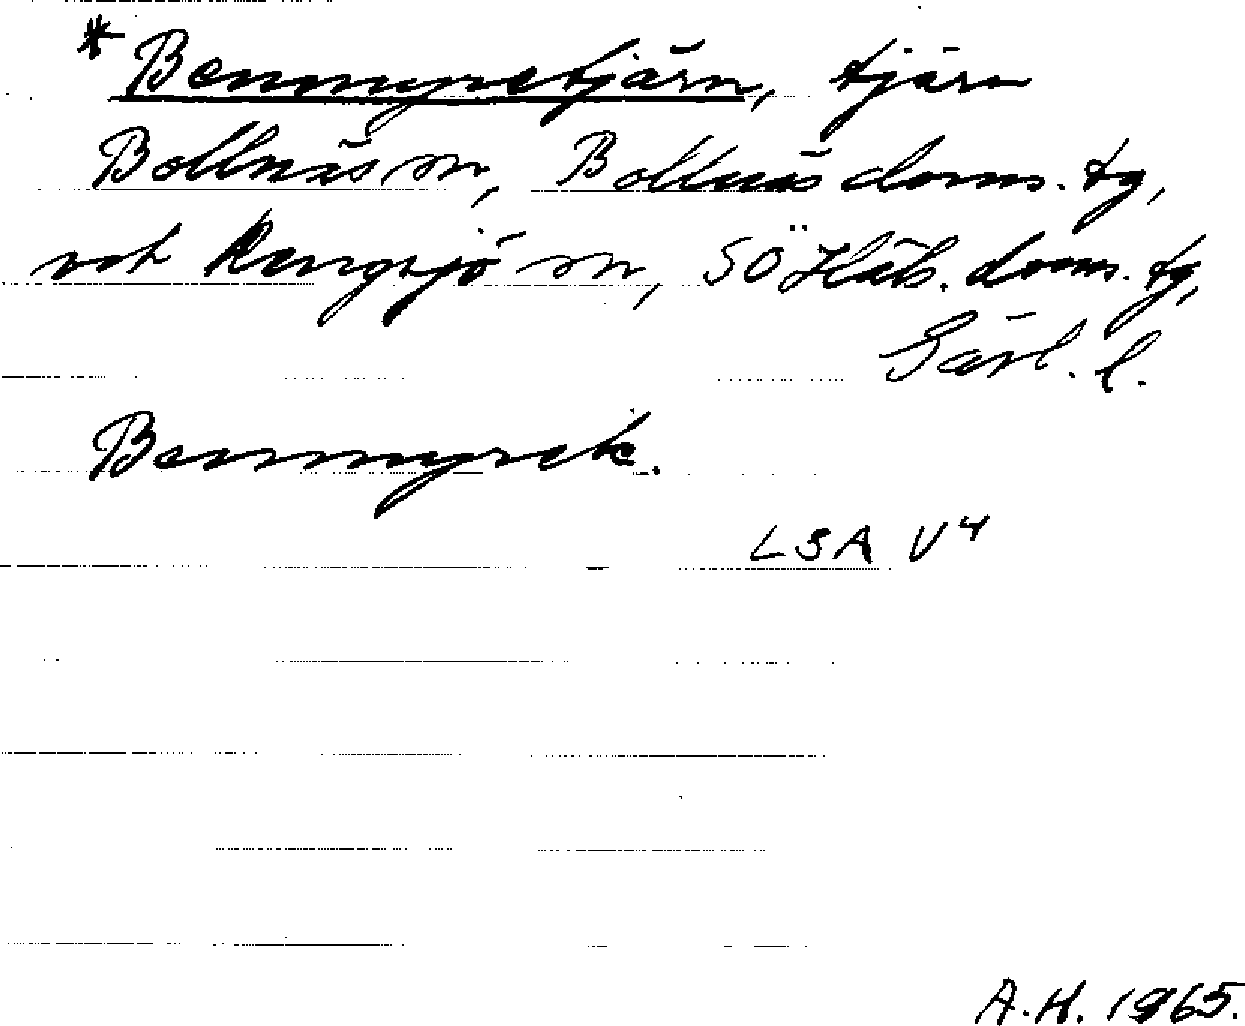 *Benmyretjärn, tjärn
Bollnäs sn, Bollnäs doms. tg,
och Rengsjö sn, SÖ Häls. doms. tg,
Gävl. l.
Benmyretk.
LSA V4
A.H. 1965.